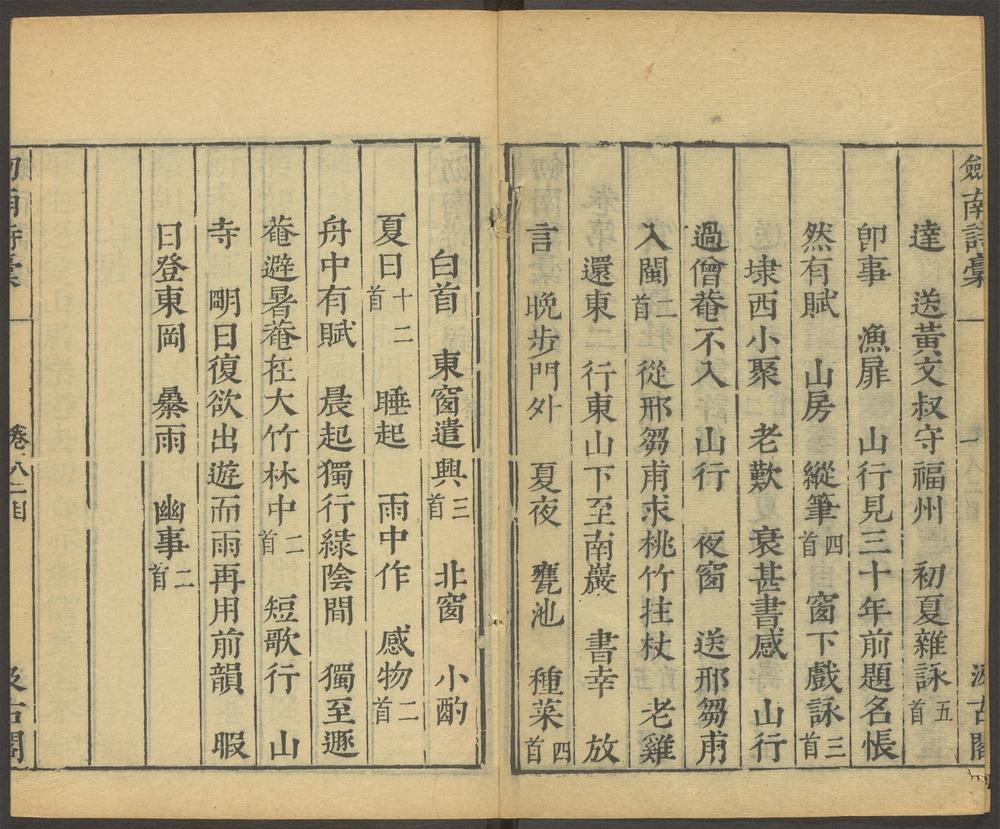 劒南詩稾 一 汲古閣
達 送黃文叔守福州 初夏雜詠五首
卽事 漁扉 山行見三十年前題名悵
然有賦 山房 縱筆四首 窗下戲詠三首
埭西小聚 老歎 衰甚書感 山行
過僧菴不入 山行 夜窗 送邢芻甫
入閩二首 從邢芻甫求桃竹拄杖 老雞
還東二 行東山下至南巖 書幸 放
言 晚步門外 夏夜 甕池 種菜四首
白首 東窗遣興三首 北窗 小酌
夏日十二首 睡起 雨中作 感物二首
舟中有賦 晨起獨行綠陰間 獨至遯
菴避暑菴在大竹林中二首 短歌行 山
寺 明日復欲出遊而雨再用前韻 暇
日登東岡 暴雨 幽事二首
卷八二目